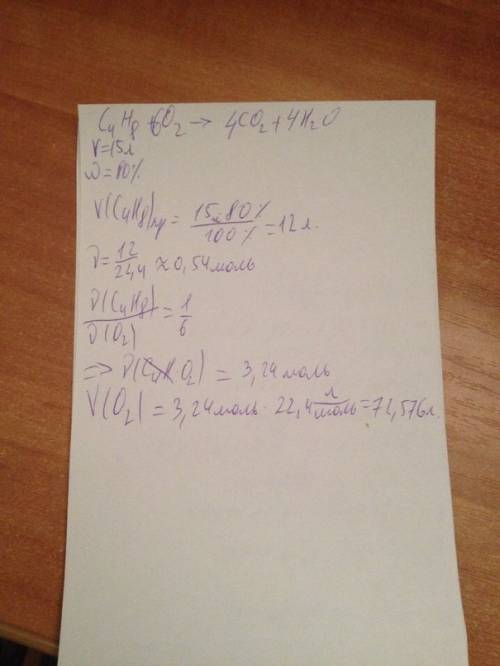 C₄H₈ + 6O₂ → 4CO₂ + 4H₂O
V = 15л
ω = 80%
V(C₄H₈)пр = 15л·80% / 100% = 12 л.
ν = 12 / 22,4 ≈ 0,54 моль
ν(C₄H₈) / ν(O₂) = 1 / 6
=> ν(O₂) = 3,24 моль
V(O₂) = 3,24 моль · 22,4 л/моль = 72,576 л.